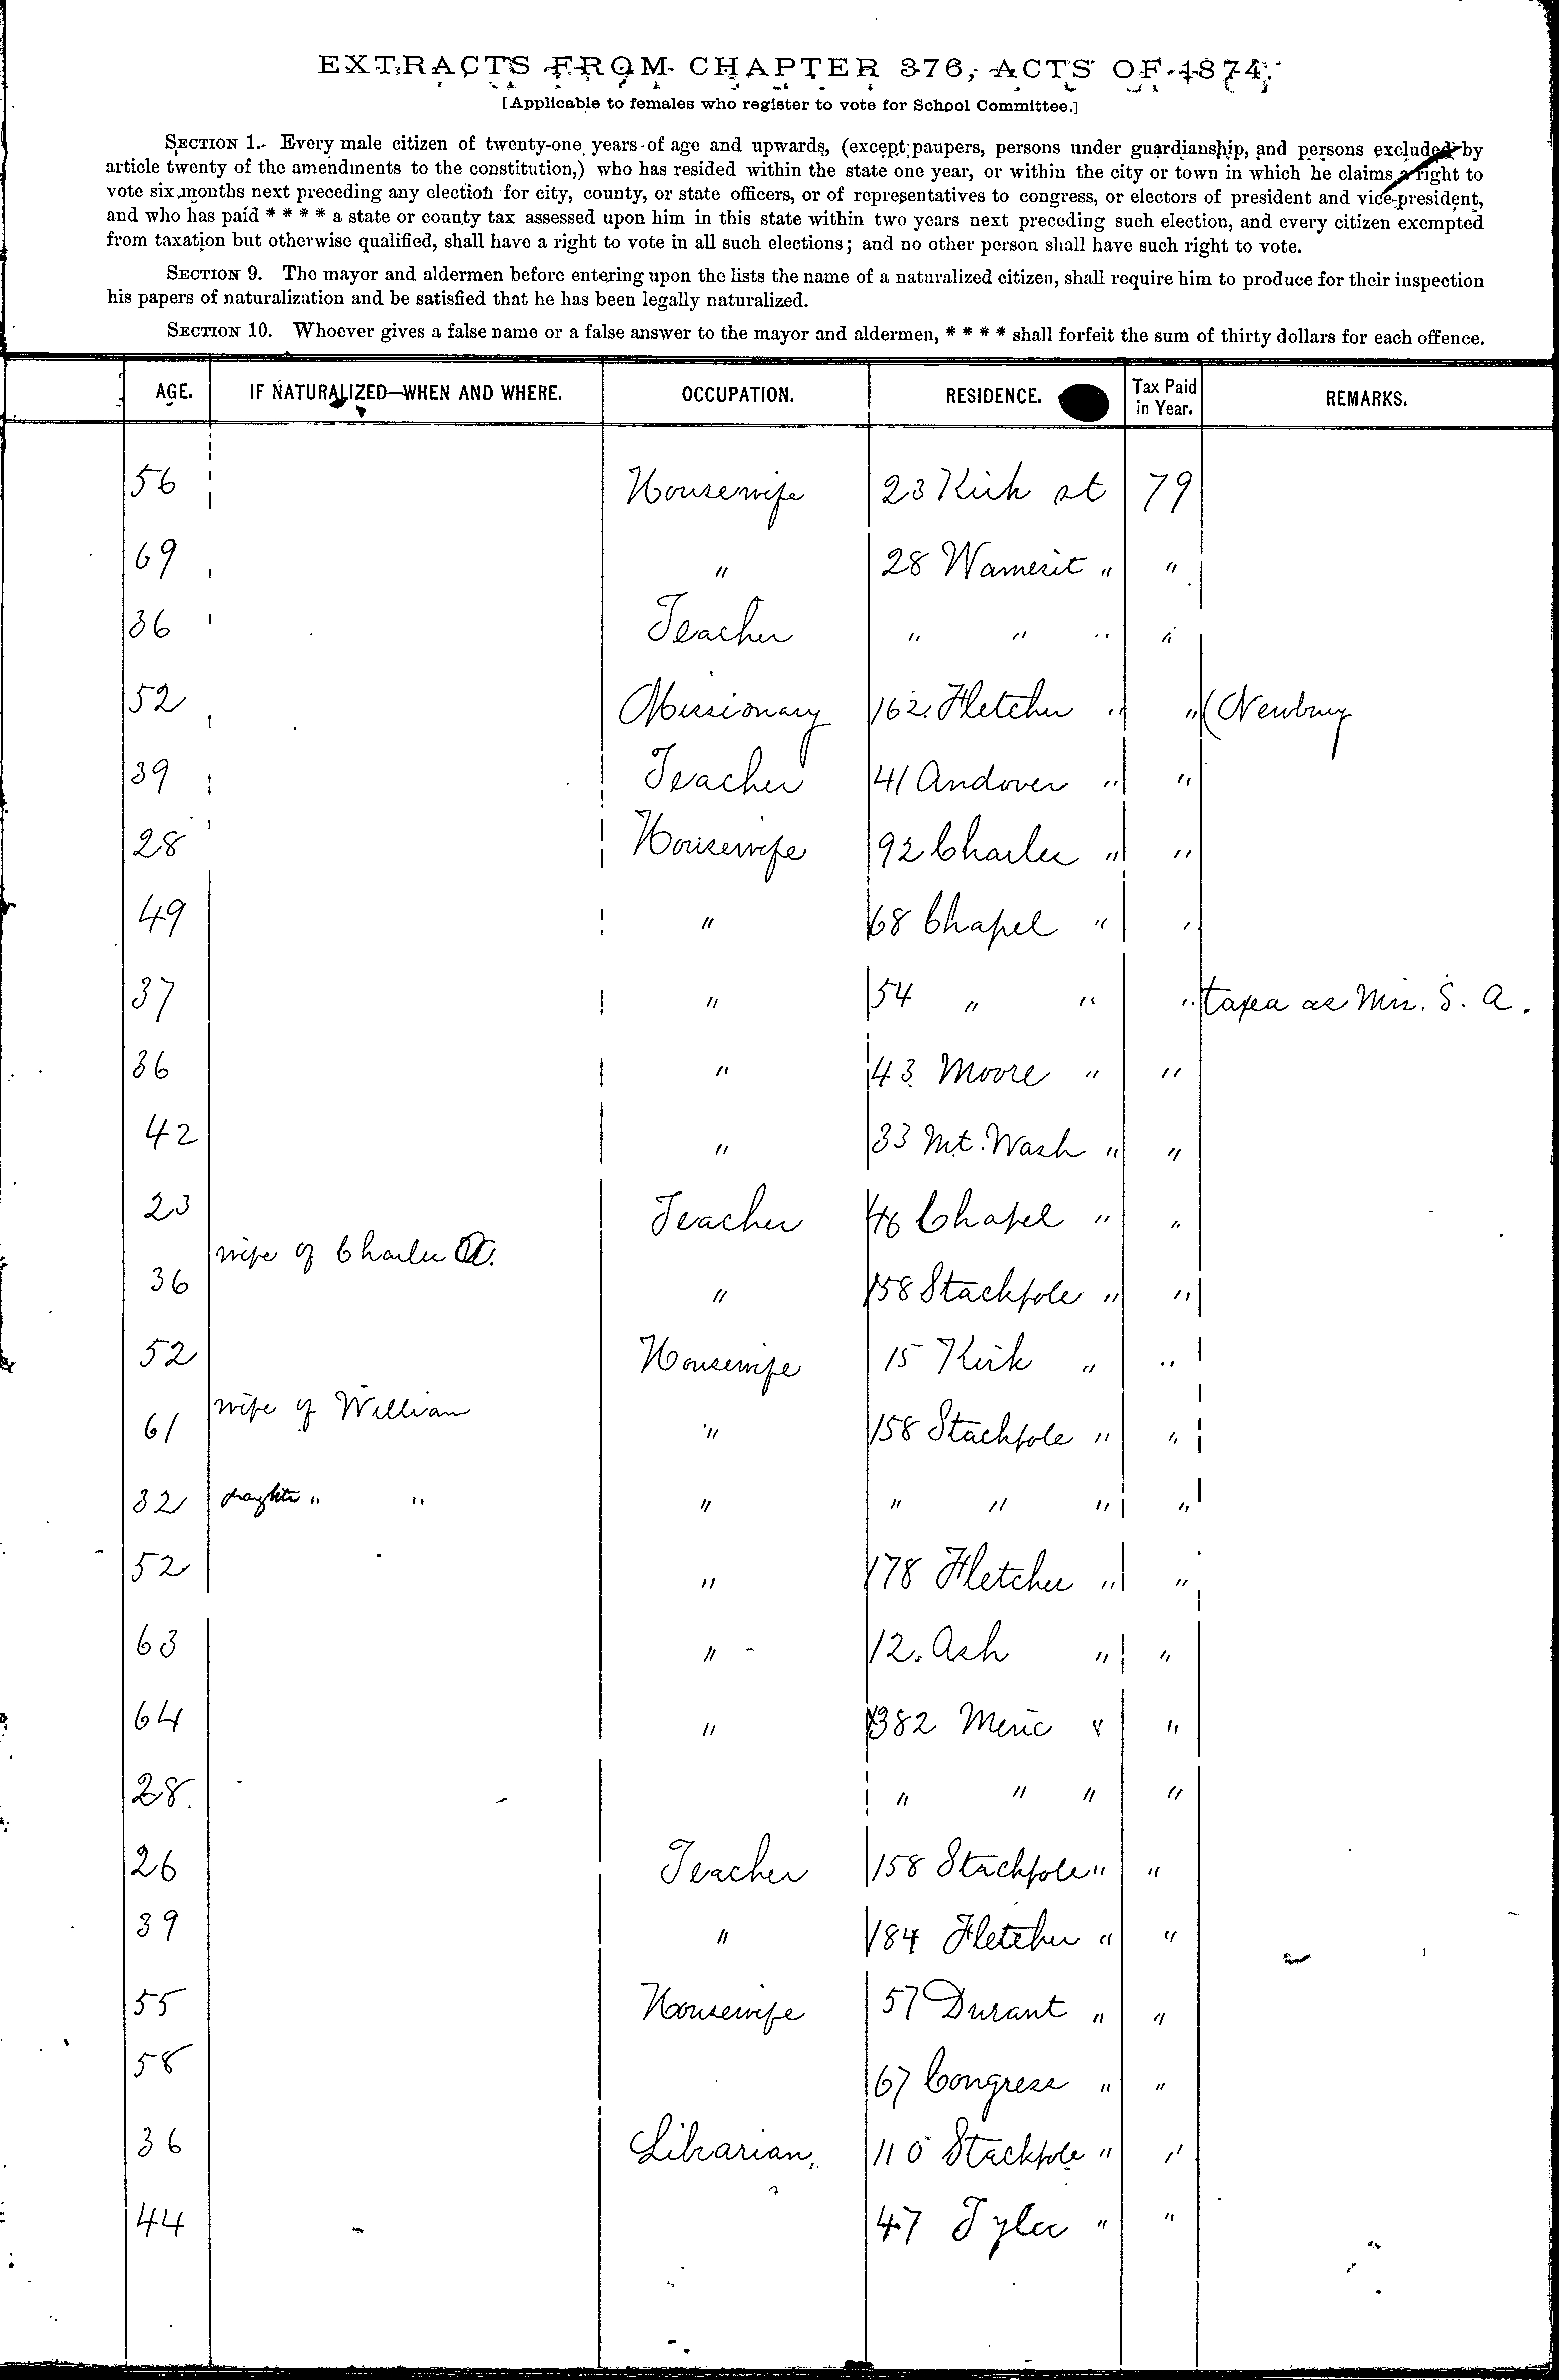 EXTRACTS FROM CHAPTER 376, ACTS OF 1874.
[Applicable to females who register to vote for School Committee.]
SECTION 1. Every male citizen of twenty-one years of age and upwards, (except paupers, persons under guardianship, and persons excluded by
article twenty of the amendments to the constitution,) who has resided within the state one year, or within the city or town in which he claims a right to
vote six months next preceding any election for city, county, or state officers, or of representatives to congress, or electors of president and vice-president,
and who has paid * * * * a state or county tax assessed upon him in this state within two years next preceding such election, and every citizen exempted
from taxation but otherwise qualified, shall have a right to vote in all such elections; and no other person shall have such right to vote.
SECTION 9. The mayor and aldermen before entering upon the lists the name of a naturalized citizen, shall require him to produce for their inspection
his papers of naturalization and be satisfied that he has been legally naturalized.
SECTION 10. Whoever gives a false name or a false answer to the mayor and aldermen, * * * * shall forfeit the sum of thirty dollars for each offence.
AGE. IF NATURALIZED—WHEN AND WHERE. OCCUPATION. RESIDENCE. Tax Paid in Year. REMARKS.
56 Housewife 23 Kirk st 79
69 " 28 Wamesit " "
36 Teacher " " " "
52 Missionary 162 Fletcher " " (Newbury
39 Teacher 41 Andover " "
28 Housewife 92 Charles " "
49 " 68 Chapel " "
37 " 54 " " " taxed as Mrs. S. A.
36 " 43 Moore " "
42 " 33 Mt. Wash " "
23 Teacher 46 Chapel " "
36 wife of Charles A. " 158 Stackpole " "
52 Housewife 15 Kirk " "
61 wife of William " 158 Stackpole " "
32 daughter " " " " " " "
52 " 178 Fletcher " "
63 " 12. Ash " "
64 " 382 Meric " "
28. " " " "
26 Teacher 158 Stackpole " "
39 " 184 Fletcher " "
55 Housewife 57 Durant " "
58 67 Congress " "
36 Librarian 110 Stackpole " "
44 47 Tyler " "